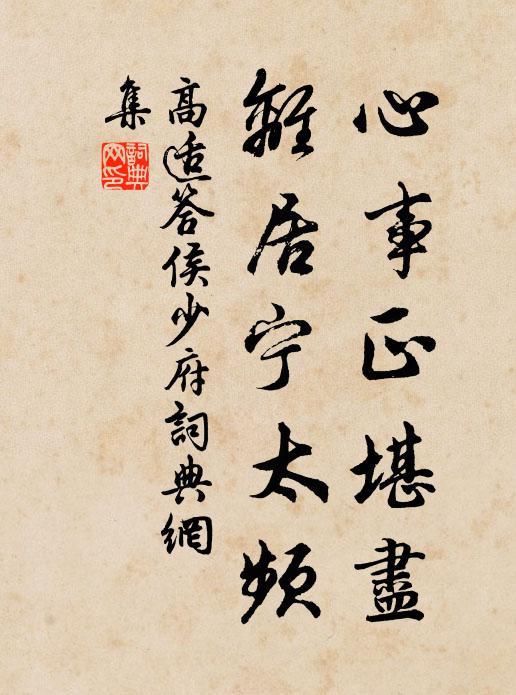 心事正堪盡
離居宁太頻
高适答侯少府詞典網
集
詞典
网印